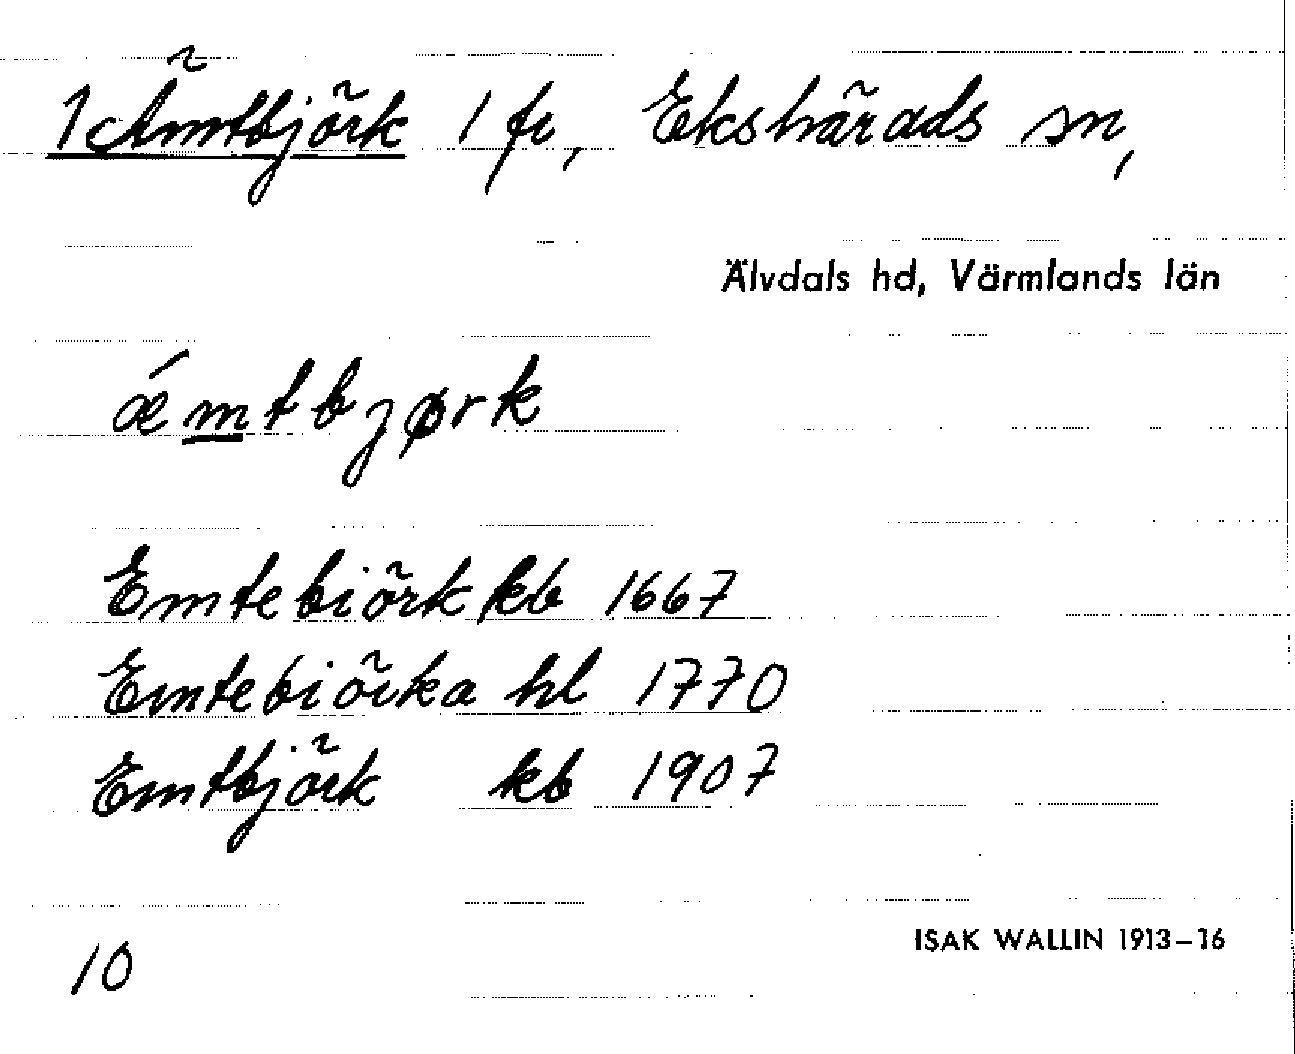 1 Ämtbjörk 1 fr, Ekshärads sn,
Älvdals hd, Värmlands län
ǽmtbjørk
Emtebiörk kb 1667
Emtebiörka hl 1770
Emtbjörk kb 1907
ISAK WALLIN 1913–16
10